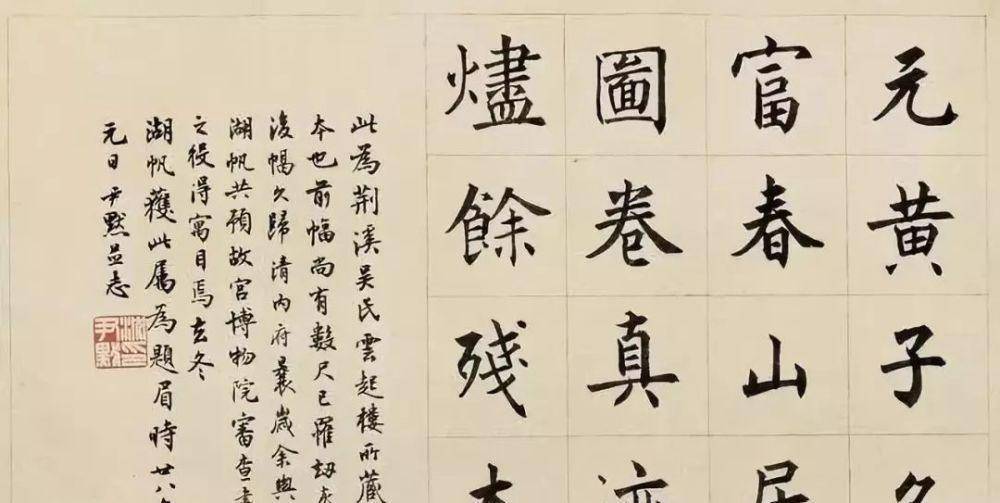 元黄子久
富春山居
圖卷真迹
燼餘殘本
此為荆溪吴氏雲起樓所藏
本也前幅尚有數尺已罹劫
後幅久歸清内府曩歲余與
湖帆共預故宫博物院審查
之役得寓目焉去冬
湖帆獲此属為題眉時廿八
元日尹默並志
沈尹默